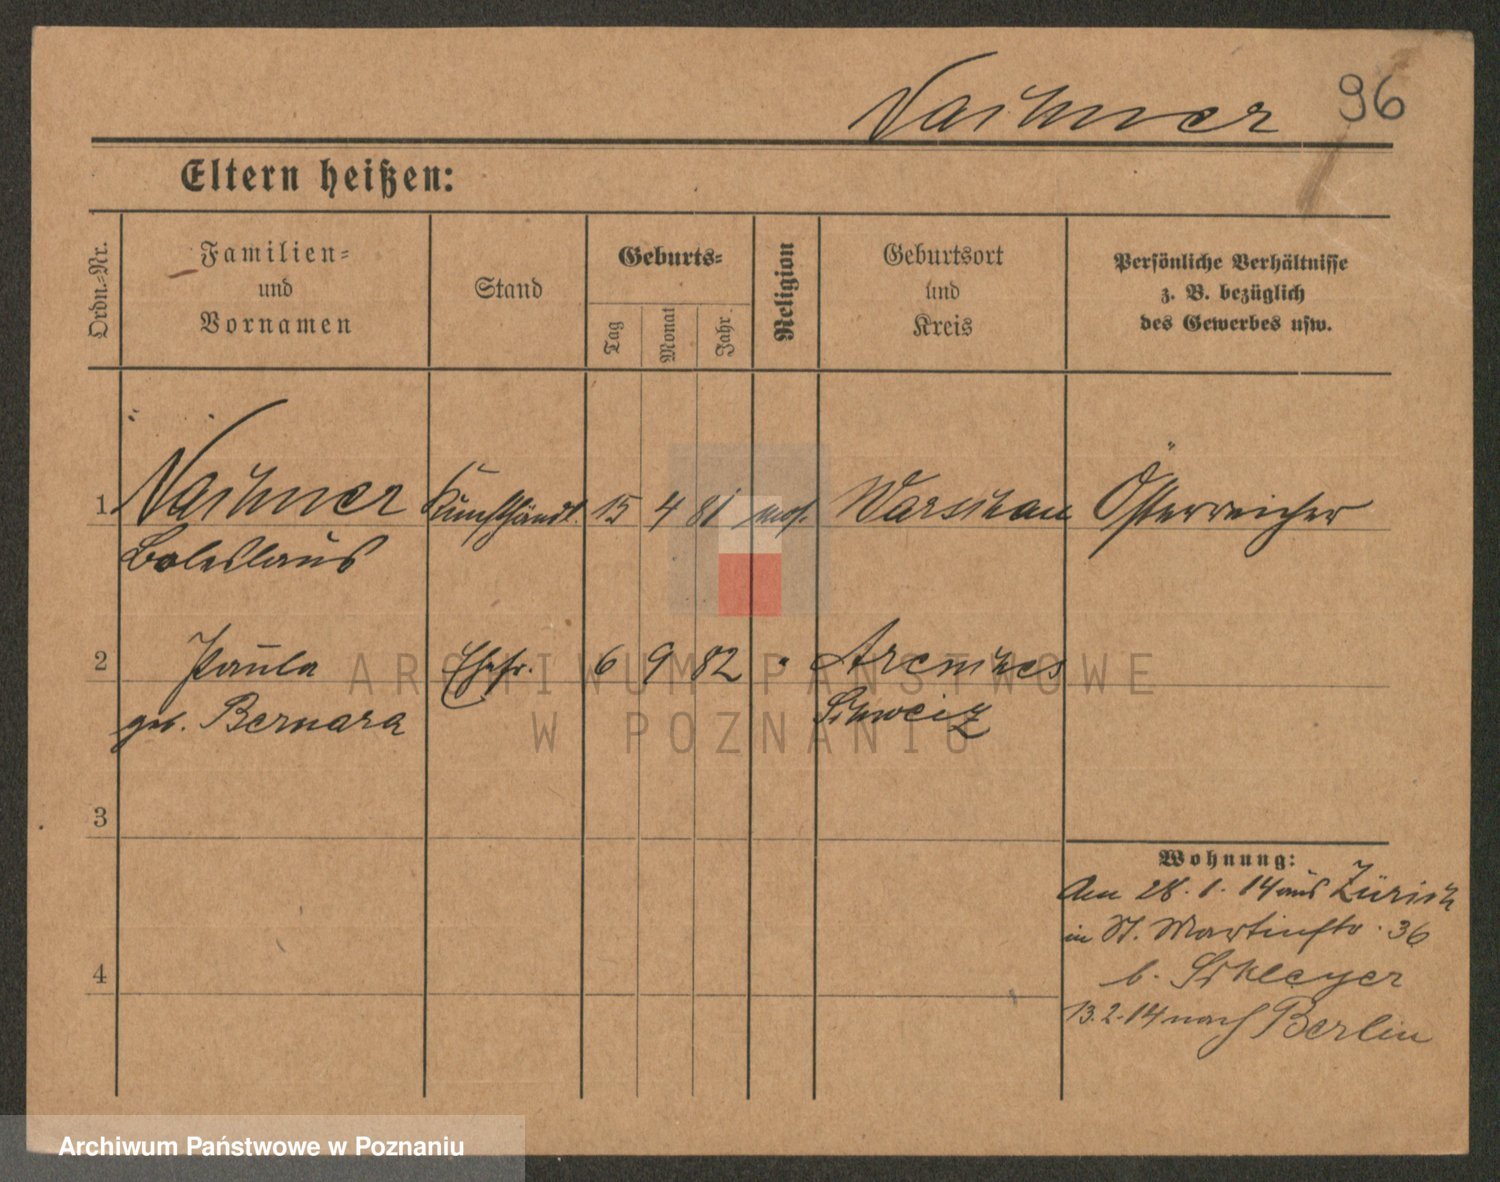 Nachmer 96
Eltern heißen:
Ordn.-Nr.
Familien-
und
Vornamen
Stand
Geburts-
Tag
Monat
Jahr
Religion
Geburtsort
und
Kreis
Persönliche Verhältnisse
z. B. bezüglich
des Gewerbes usw.
1 Nachmer Kunsthändl. 15 4 81 mos. Warschau Österreicher
Boleslaus
2 Paula Ehefr. 6 9 82 "
geb. Schweiz
3
Wohnung:
Am 28. 1. 14 aus Zürich
in St. Martinstr. 36
4
b. Schleyer
13. 2. 14 nach Berlin
ARCHIWUM PAŃSTWOWE
W POZNANIU
Archiwum Państwowe w Poznaniu